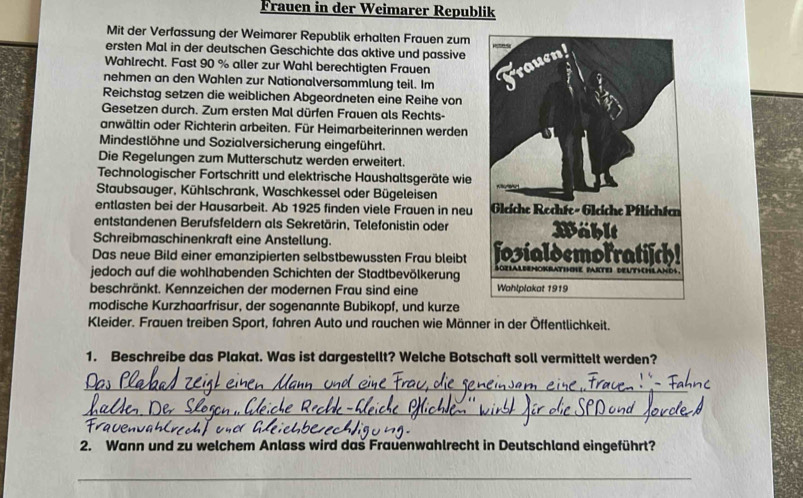 Frauen in der Weimarer Republik
Mit der Verfassung der Weimarer Republik erhalten Frauen zum
ersten Mal in der deutschen Geschichte das aktive und passive
Wahlrecht. Fast 90 % aller zur Wahl berechtigten Frauen
nehmen an den Wahlen zur Nationalversammlung teil. Im
Reichstag setzen die weiblichen Abgeordneten eine Reihe von
Gesetzen durch. Zum ersten Mal dürfen Frauen als Rechts-
anwältin oder Richterin arbeiten. Für Heimarbeiterinnen werden
Mindestlöhne und Sozialversicherung eingeführt.
Die Regelungen zum Mutterschutz werden erweitert.
Technologischer Fortschritt und elektrische Haushaltsgeräte wie
Staubsauger, Kühlschrank, Waschkessel oder Bügeleisen
entlasten bei der Hausarbeit. Ab 1925 finden viele Frauen in neu
entstandenen Berufsfeldern als Sekretärin, Telefonistin oder
Schreibmaschinenkraft eine Anstellung.
Das neue Bild einer emanzipierten selbstbewussten Frau bleibt
jedoch auf die wohlhabenden Schichten der Stadtbevölkerung
beschränkt. Kennzeichen der modernen Frau sind eine
modische Kurzhaarfrisur, der sogenannte Bubikopf, und kurze
Kleider. Frauen treiben Sport, fahren Auto und rauchen wie Männer in der Öffentlichkeit.
Frauen!
Gleiche Rechte - Gleiche Pflichten
Wählt
sozialdemokratisch!
SOZIALDEMOKRATISCHE PARTEI DEUTSCHLANDS.
Wahlplakat 1919
1. Beschreibe das Plakat. Was ist dargestellt? Welche Botschaft soll vermittelt werden?
Das Plakat zeigt einen Mann und eine Frau, die geneinsam eine „Frauen!"- Fahne
halten. Der Slogan „Gleiche Rechte - Gleiche Pflichten" wirbt für die SPD und fordert
Frauenwahlrecht und Gleichberechtigung.
2. Wann und zu welchem Anlass wird das Frauenwahlrecht in Deutschland eingeführt?